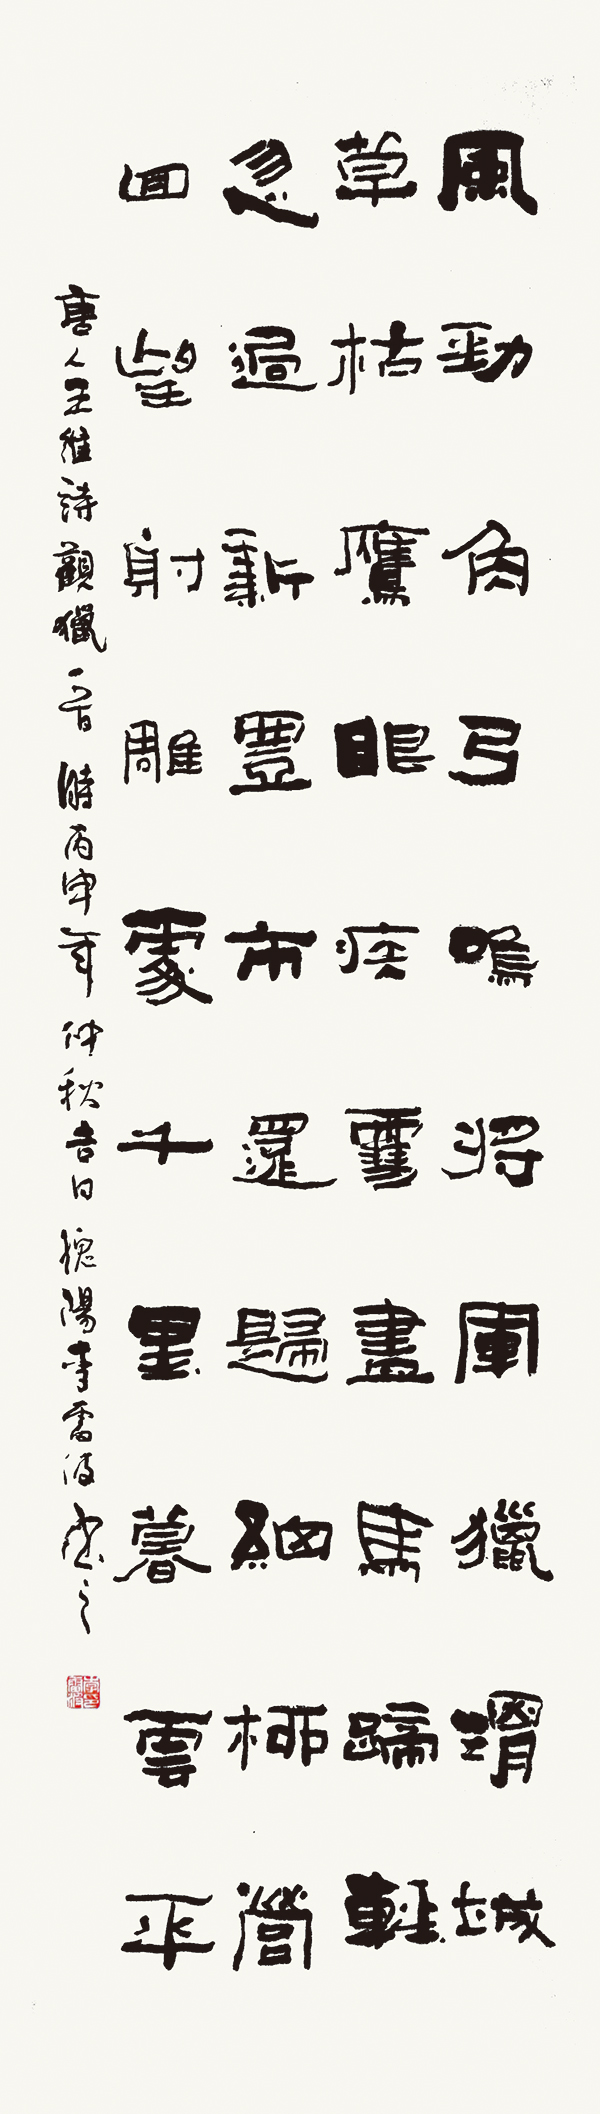 風勁角弓鳴將軍獵渭城
草枯鷹眼疾雪盡馬蹄輕
忽過新豐市還歸細柳營
回望射雕處千里暮雲平
唐人王維詩觀獵一首時丙申年仲秋吉日槐陽李雷波書之